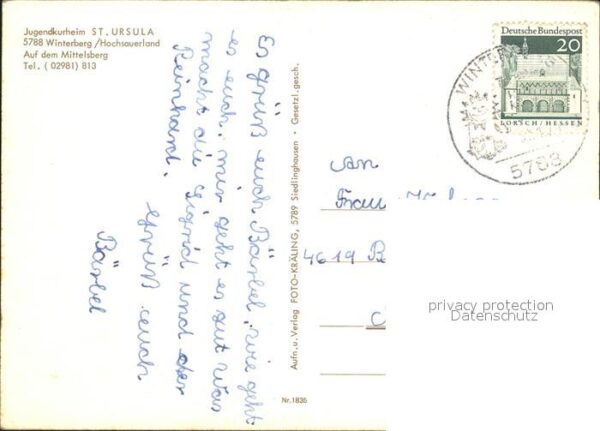 Jugendkurheim ST. URSULA
5788 Winterberg/Hochsauerland
Auf dem Mittelsberg
Tel. (02981) 813
Es grüß euch Bärbel, wie geht
es euch, mir geht es gut Was
macht die Sigrid und der
Reinhard. Grüß euch
Bärbel
Aufn. u. Verlag FOTO-KRÄLING, 5789 Siedlinghausen · Gesetzl. gesch.
Nr. 1836
Deutsche Bundespost
20
LORSCH/HESSEN
WINTER
5788
An
Frau
4619
privacy protection
Datenschutz